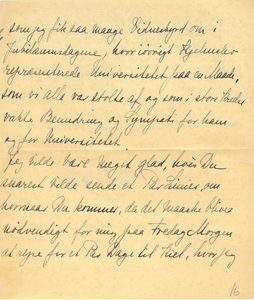 som jeg fik saa mange Vidnesbyrd om i
Jubilæumsdagene, hvor iøvrigt Hjelmslev
repræsenterede Universitetet paa en Maade,
som vi alle var stolte af og som i stor Kreds
vakte Beundring og Sympati for ham
og for Universitetet.
Jeg vilde være meget glad, hvis Du
snarest vilde sende et Par Linier om
hvornaar Du kommer, da det maaske bliver
nødvendigt for mig paa Fredag Morgen
at rejse for et Par Dage til Kiel, hvor jeg
16